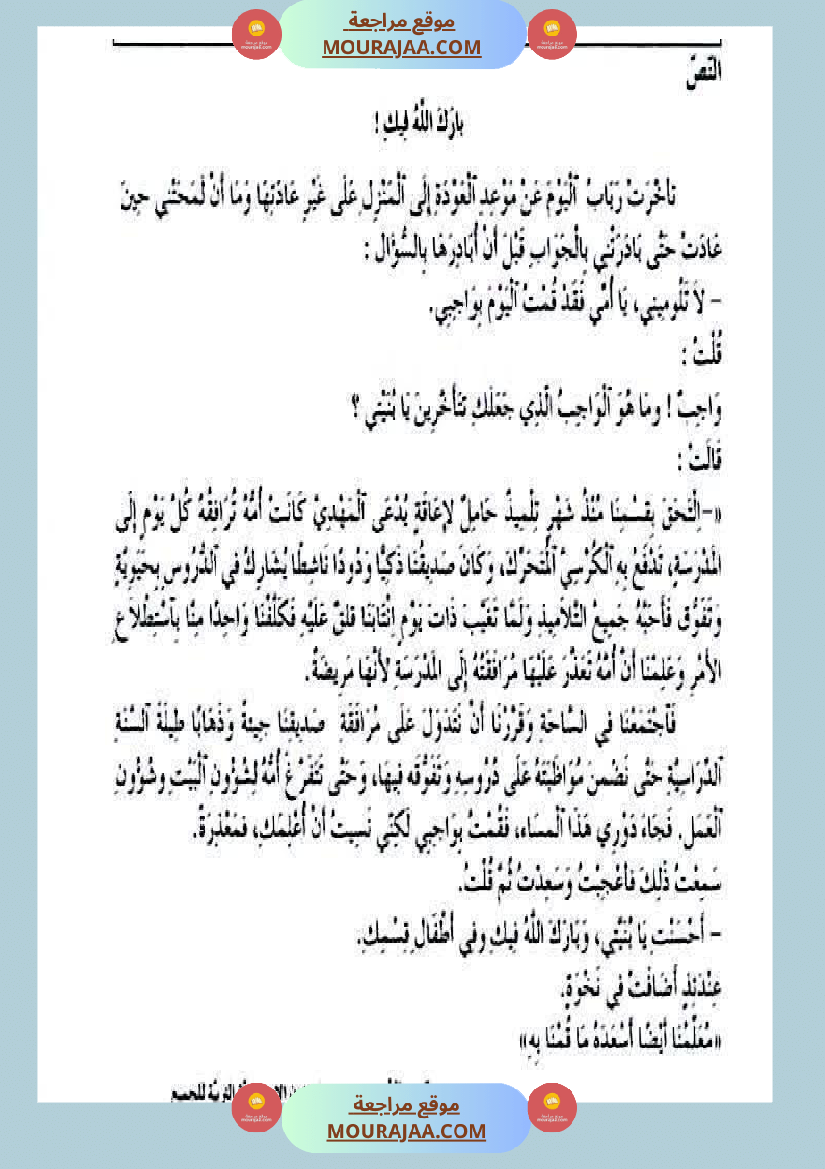 موقع مراجعة
MOURAJAA.COM
النّصّ
بارَكَ اللَّهُ فِيكِ !
تأخّرَتْ رَبَابُ ٱلْيَوْمَ عَنْ مَوْعِدِ ٱلْعَوْدَةِ إِلَى ٱلْمَنْزِلِ عَلَى غَيْرِ عَادَتِهَا وَمَا أَنْ لَمَحَتْنِي حِينَ
عَادَتْ حَتَّى بَادَرَتْنِي بِالْجَوَابِ قَبْلَ أَنْ أُبَادِرَهَا بِالسُّؤَال :
– لاَ تَلُومِينِي، يَا أُمِّي فَقَدْ قُمْتُ ٱلْيَوْمَ بِوَاجِبِي.
قُلْتُ :
وَاجِبٌ ! ومَا هُوَ ٱلْوَاجِبُ الَّذِي جَعَلَكِ تَتَأَخَّرِينَ يَا بُنَيَّتِي ؟
قَالَتْ :
«–اِلْتَحَقَ بِقِسْمِنَا مُنْذُ شَهْرٍ تِلْمِيذٌ حَامِلٌ لإِعَاقَةٍ يُدْعَى ٱلْمَهْدِيْ كَانَتْ أُمُّهُ تُرَافِقُهُ كُلَّ يَوْمٍ إِلَى
المَدْرَسَةِ، تَدْفَعُ بِهِ ٱلْكُرْسِيَّ ٱلْمُتَحَرِّكَ، وَكَانَ صَدِيقُنَا ذَكِيًّا وَدُودًا نَاشِطًا يُشَارِكُ فِي ٱلدُّرُوسِ بِحَيَوِيَّةٍ
وَتَفَوُّقٍ فَأَحَبَّهُ جَمِيعُ التَّلاَمِيذِ وَلَمَّا تَغَيَّبَ ذَاتَ يَوْمٍ اِنْتَابَنَا قلقٌ عَلَيْهِ فَكَلَّفْنَا وَاحِدًا مِنَّا بِٱسْتِطْلاَعِ
الأَمْرِ وَعَلِمْنَا أَنَّ أُمَّهُ تَعَذَّرَ عَلَيْهَا مُرَافَقَتُهُ إِلَى المَدْرَسَةِ لأَنَّهَا مَرِيضَةٌ.
فَٱجْتَمَعْنَا فِي السَّاحَةِ وَقَرَّرْنَا أَنْ نَتَدَوَلَ عَلَى مُرَافَقَةِ صَدِيقِنَا جِيئةً وَذَهَابًا طِيلَةَ ٱلسَّنَةِ
ٱلدِّرَاسِيَّةِ حَتَّى نَضْمنَ مُوَاظَبَتَهُ عَلَى دُرُوسِهِ وَتَفَوُّقَه فِيهَا، وَحَتَّى تَتَفَرَّغَ أُمُّهُ لِشُؤُونِ ٱلْبَيْتِ وشُؤُونِ
ٱلْعَمَلِ. فَجَاءَ دَوْرِي هَذَا ٱلْمسَاء، فَقُمْتُ بِوَاجِبِي لَكِنِّي نَسِيتُ أَنْ أُعْلِمَكِ، فمَعْذِرَةً.
سَمِعْتُ ذَلِكَ فأُعْجِبْتُ وَسَعِدْتُ ثُمَّ قُلْتُ.
– أَحْسَنْتِ يَا بُنَيَّتِي، وَبَارَكَ اللَّهُ فيكِ وفِي أَطْفَالِ قِسْمِكِ.
عِنْدَئِذٍ أَضَافَتْ فِي نَخْوَةٍ.
«مُعَلِّمُنَا أَيْضًا أَسْعَدَهُ مَا قُمْنَا بِهِ»
للجميع
موقع مراجعة
MOURAJAA.COM